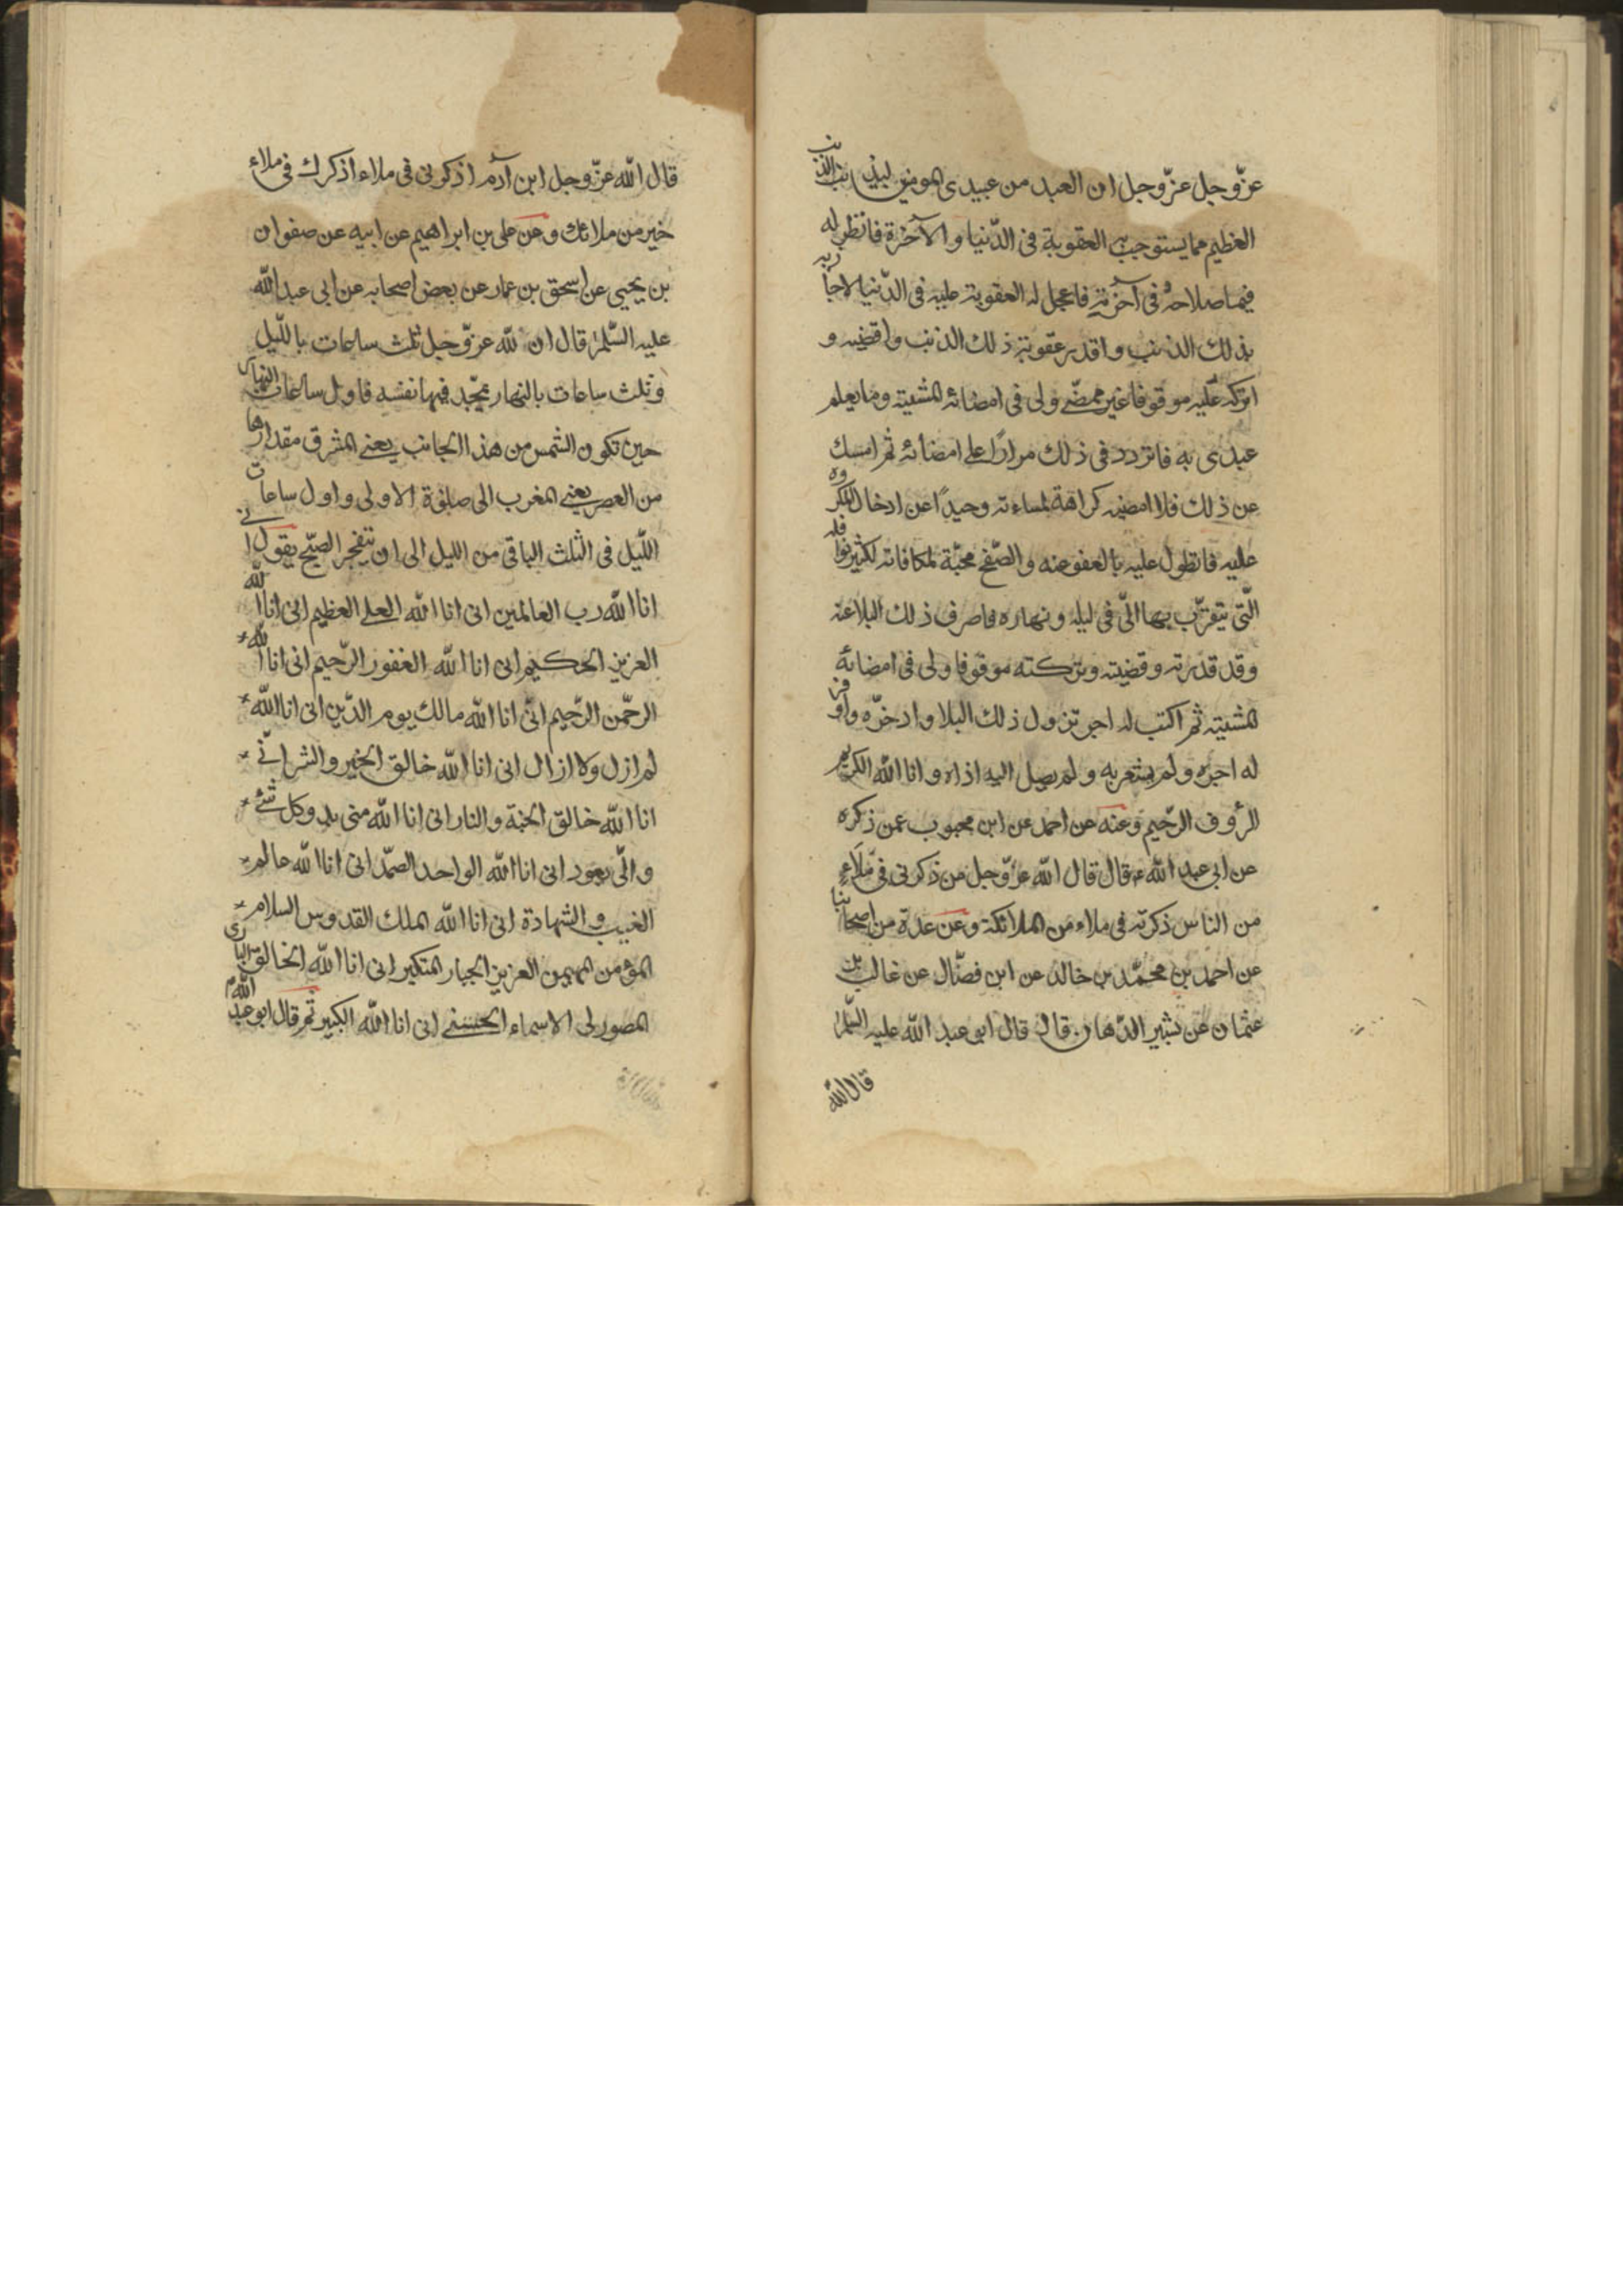 عزّ وجل عزّ وجل ان العبد من عبيدى المومنين ليذنب الذنب
العظيم مما يستوجب به العقوبة فى الدّنيا والآخرة فانظر له
فيما صلاحه فى آخرته فاعجل له العقوبة عليه فى الدّنيا لاجازيه
بذلك الذنب واقدر عقوبة ذلك الذنب واقضيه و
اتركه عليه موقوفا غير ممضّى ولى فى امضائه المشية وما يعلم
عبدى به فاتردد فى ذلك مرارًا على امضائه ثم امسك
عن ذلك فلا امضيه كراهة لمساءته وحيدًا عن ادخال المكروه
عليه فاتطول عليه بالعفو عنه والصّفح محبّة لمكافاته لكثير نوافله
الّتى يتقرّب بها الىّ فى ليله ونهاره فاصرف ذلك البلا عنه
وقد قدرته وقضيته وتركته موقوفا ولى فى امضائه
المشية ثم اكتب له اجر نزول ذلك البلا وادخرّه واوفر
له اجره ولم يشعر به ولم يصل اليه اذاه وانا الله الكريم
الرؤوف الرّحيم وعنه عن احمد عن ابن محبوب عمن ذكره
عن ابى عبد الله ع قال قال الله عزّ وجل من ذكرنى فى ملاء
من الناس ذكرته فى ملاء من الملائكة وعن عدة من اصحابنا
عن احمد بن محمّد بن خالد عن ابن فضّال عن غالب بن
عثمان عن بشير الدّهان قال قال ابى عبد الله عليه السّلم
قال الله
قال الله عزّ وجل ابن آدم اذكرنى فى ملاء اذكرك فى ملاء
خير من ملائك وعن على بن ابراهيم عن ابيه عن صفوان
بن يحيى عن اسحق بن عمار عن بعض اصحابه عن ابى عبد الله
عليه السّلم قال ان لله عزّ وجل ثلث ساعات بالّليل
وثلث ساعات بالنهار يمجّد فيها نفسه فاول ساعات النهار
حين تكون الشمس من هذا الجانب يعنى المشرق مقدارها
من العصر يعنى المغرب الى صلوة الاولى واول ساعات
الّليل فى الثلث الباقى من الليل الى ان ينفجر الصبّح يقول انى
انا الله رب العالمين انى انا الله العلى العظيم انى انا الله
العزيز الحكيم انى انا الله الغفور الرّحيم انى انا الله
الرحّمن الرّحيم انّى انا الله مالك يوم الدّين انى انا الله
لم ازل ولا ازال انى انا الله خالق الخير والشر انّى
انا الله خالق الجنة والنار انى انا الله منى بدء وكل شئ
والىّ يعود انى انا الله الواحد الصّمد انى انا الله عالم
الغيب والشهادة انى انا الله الملك القدوس السلام
المؤمن المهيمن العزيز الجبار المتكبر انى انا الله الخالق البارى
المصور لى الاسماء الحسنى انى انا الله الكبير ثم قال ابو عبد الله